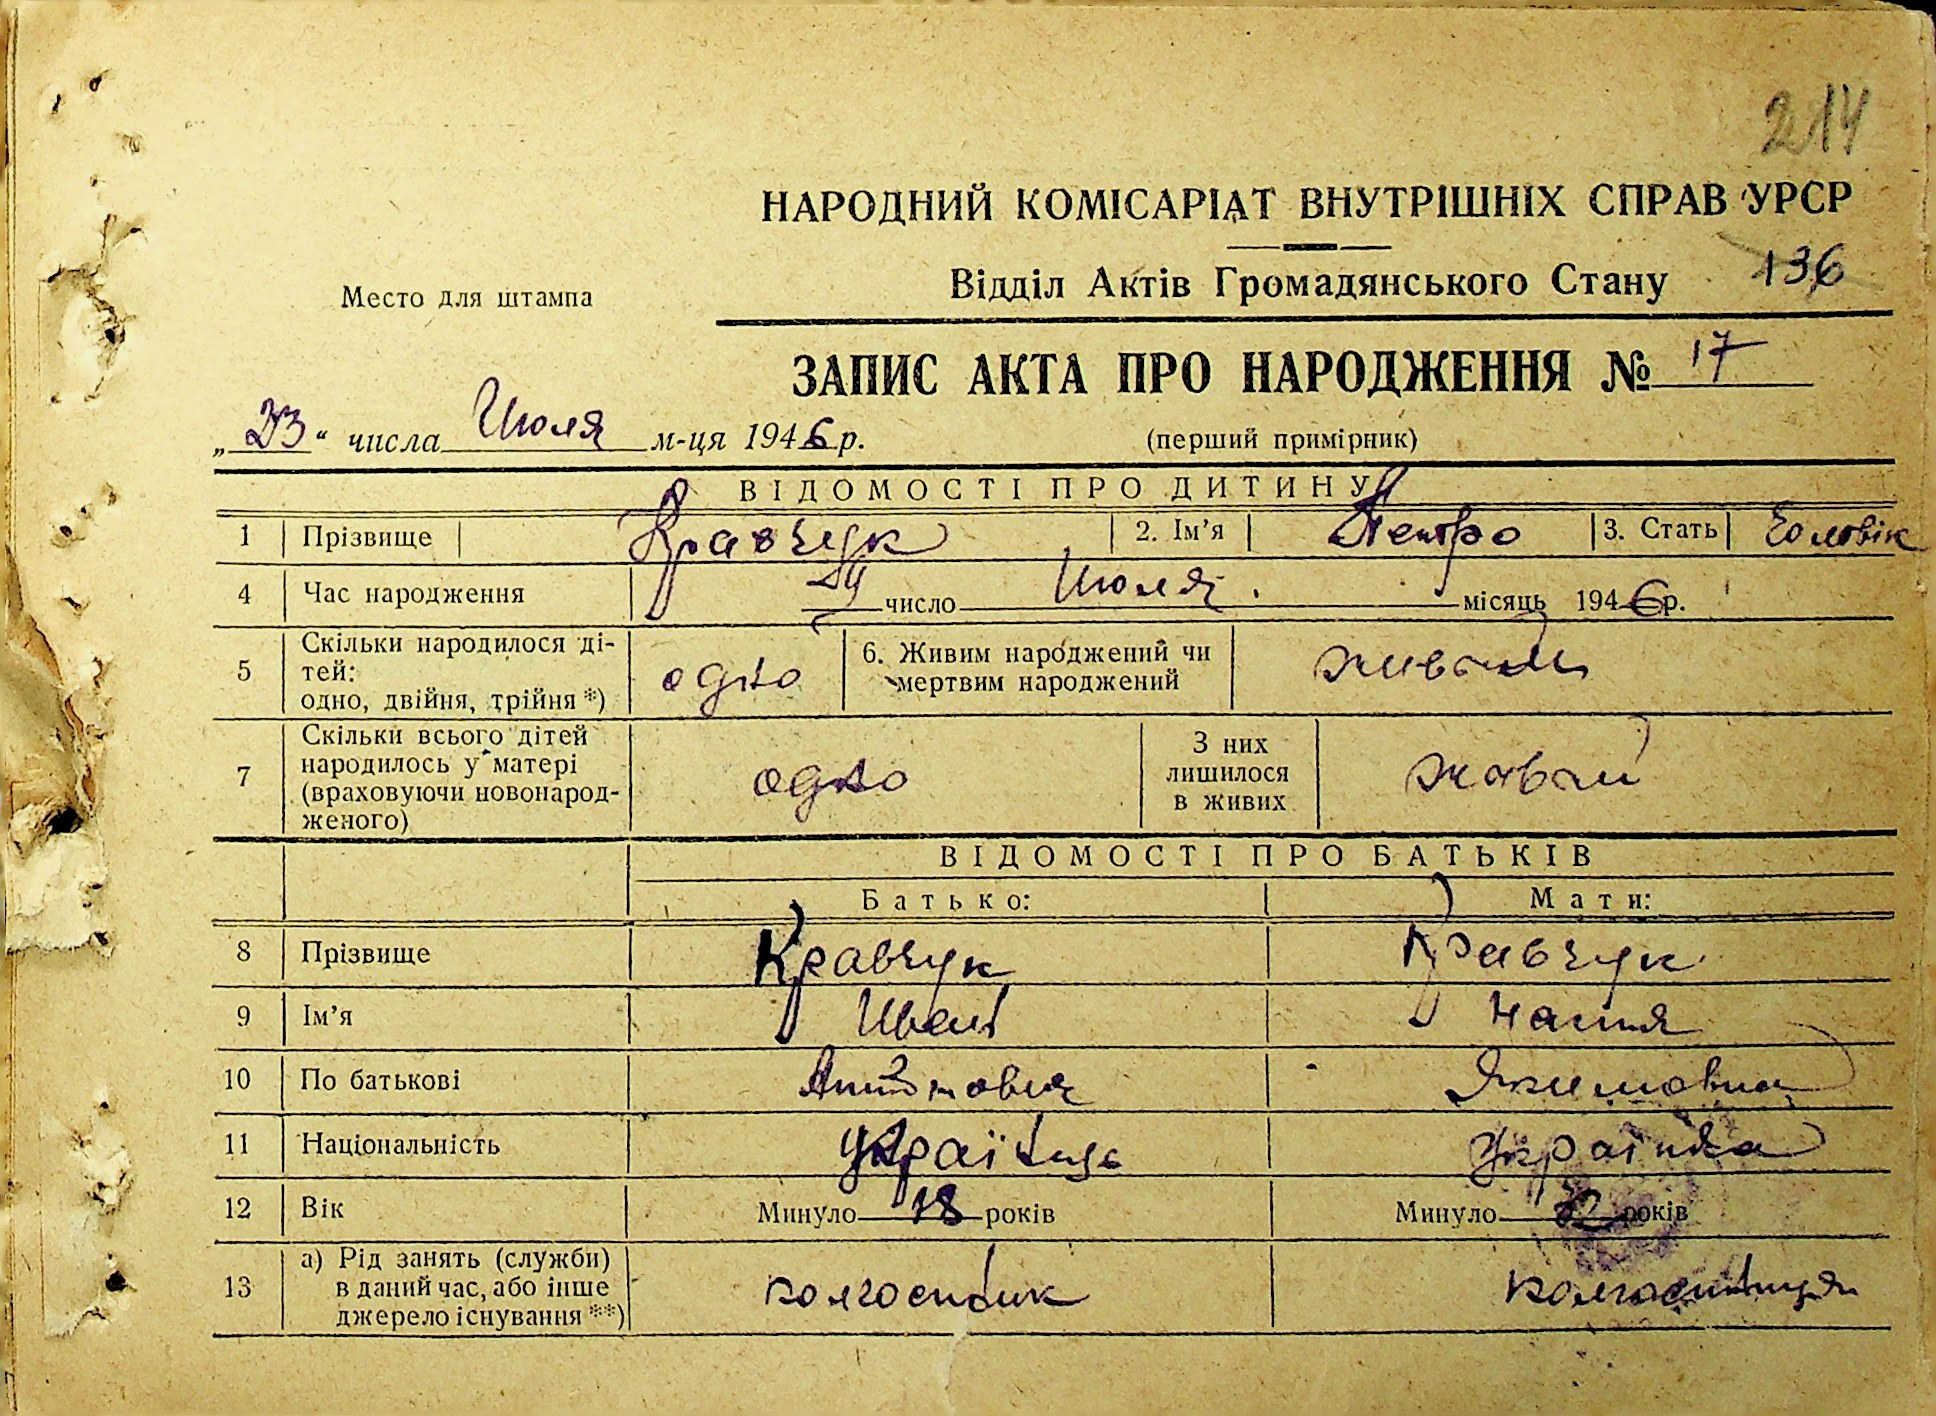 214
НАРОДНИЙ КОМІСАРІАТ ВНУТРІШНІХ СПРАВ УРСР
Место для штампа
Відділ Актів Громадянського Стану 136
ЗАПИС АКТА ПРО НАРОДЖЕННЯ № 17
„23“ числа Июля м-ця 1946 р. (перший примірник)
ВІДОМОСТІ ПРО ДИТИНУ
1 Прізвище Кравчук 2. Ім’я Петро 3. Стать Чоловік
4 Час народження число Июля місяць 1946 р.
5 Скільки народилося ді-
тей:
одно, двійня, трійня *) одно 6. Живим народжений чи
мертвим народжений живым
7 Скільки всього дітей
народилось у матері
(враховуючи новонарод-
женого) одно З них
лишилося
в живих
ВІДОМОСТІ ПРО БАТЬКІВ
Батько: Мати:
8 Прізвище Кравчук Кравчук
9 Ім’я Иван Настя
10 По батькові Антонович Якимовна
11 Національність українець українка
12 Вік Минуло 18 років Минуло років
13 а) Рід занять (служби)
в даний час, або інше
джерело існування **) колгоспник колгоспниця